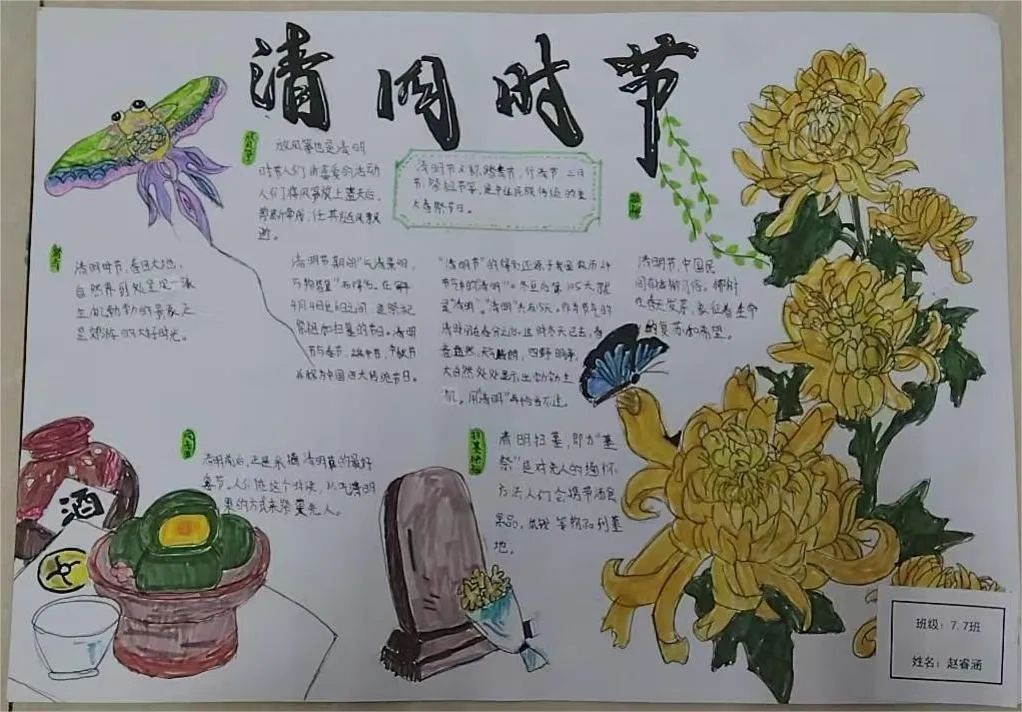 清明时节
放风筝
放风筝也是清明
时节人们所喜爱的活动
人们将风筝放上蓝天后,
剪断牵线,任其随风飘
逝。
清明节又称踏青节、行清节、三月
节、祭祖节等,是中华民族传统的重
大春祭节日。
踏青
清明时节,春回大地,
自然界到处呈现一派
生机勃勃的景象,正
是郊游的大好时光。
清明节期间“气清景明,
万物皆显”而得名。在每
4月4日至6日之间,是祭祀
祭祖和扫墓的节日。清明
节与春节、端午节、中秋节
并称为中国四大传统节日。
“清明节”的得名还源于我国农历24
节气中的清明”。冬至后第105天就
是“清明”。“清明”共有15天。作为节气的
清明,时在春分之后。这时冬天已去,春
意盎然,天气晴朗,四野明净,
大自然处处显示出勃勃生
机。用“清明”再恰当不过。
插柳
清明节,中国民
间有插柳习俗。柳树
在春天发芽,象征着生命
的复苏和希望。
清明前后,正是采摘清明菜的最好
季节。人们在这个时候,以吃清明
果的方式来祭奠先人。
酒
扫墓祭祖
清明扫墓,即为“墓
祭”是对先人的缅怀
方法人们会携带酒食
果品、纸钱等物品到墓
地。
班级:7.7班
姓名:赵睿涵